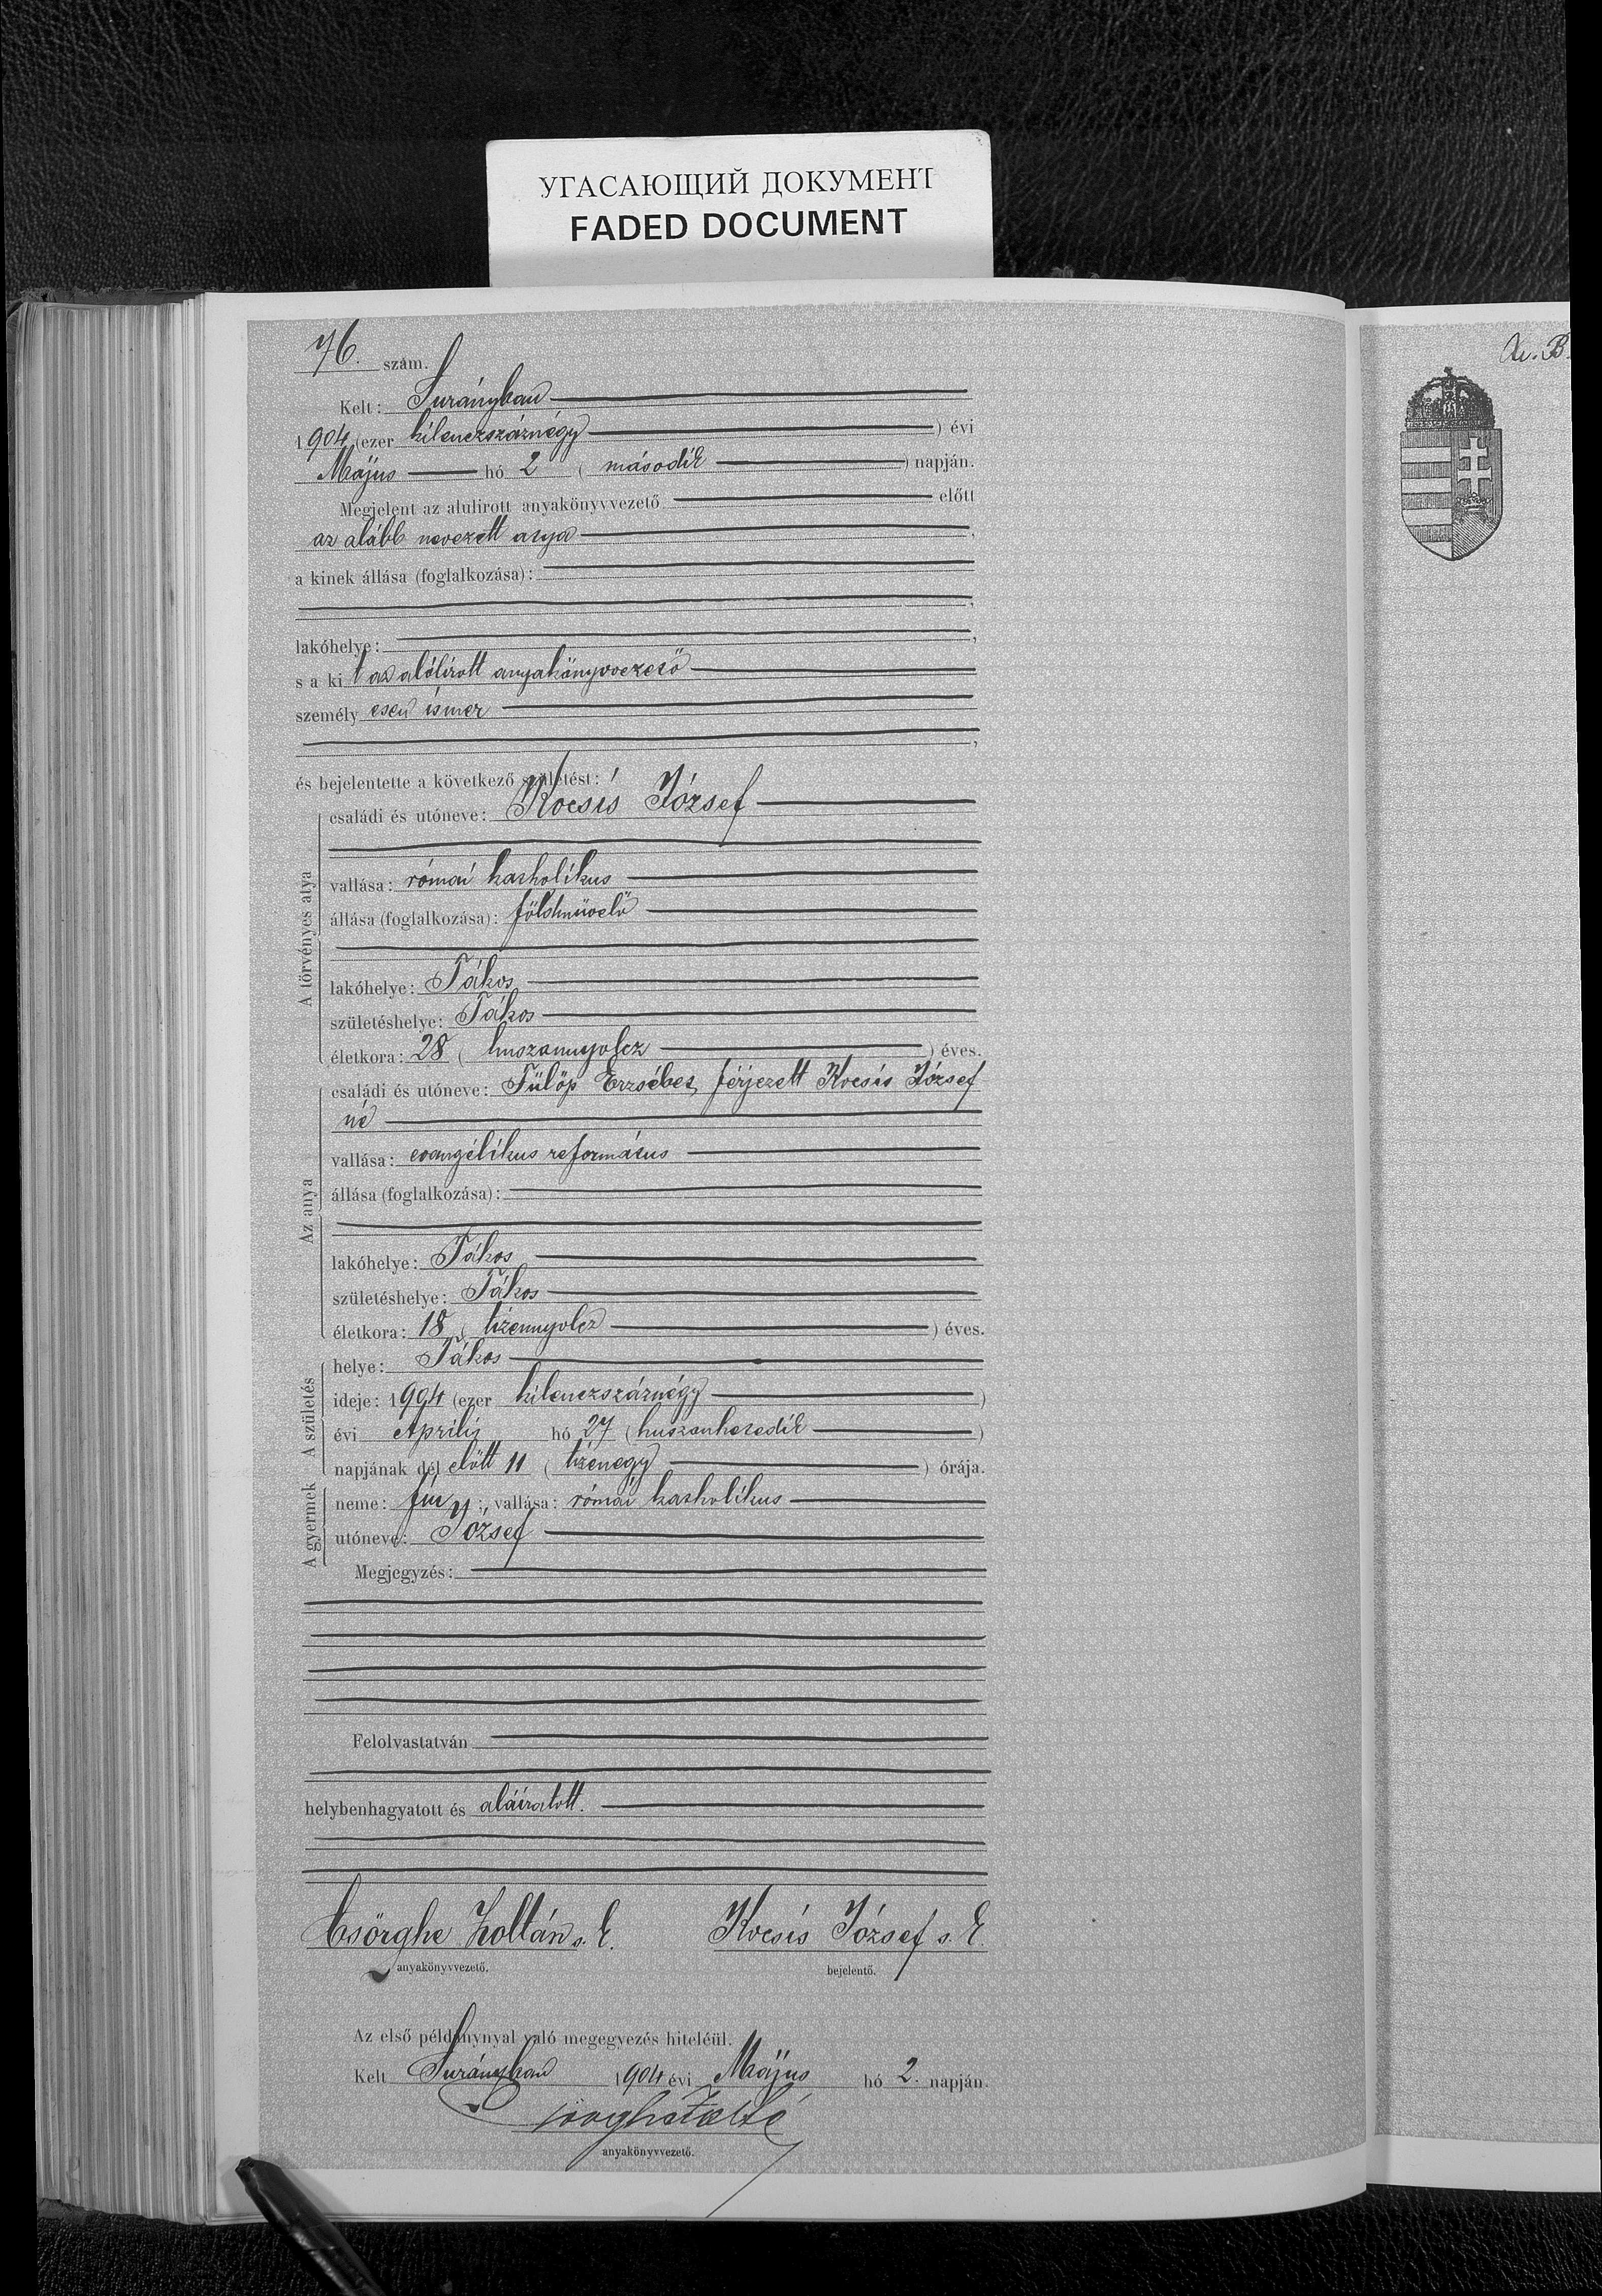 УГАСАЮЩИЙ ДОКУМЕНТ
FADED DOCUMENT
76. szám.
Kelt: Surányban
1904 (ezer kilenczszáznégy) évi
Május hó 2 (második) napján.
Megjelent az alulirott anyakönyvvezető előtt
az alább nevezett atya,
a kinek állása (foglalkozása):
lakóhelye:
s a kit az alólirott anyakönyvvezető
személyesen ismer
és bejelentette a következő születést:
A törvényes atya
családi és utóneve: Kocsis József
vallása: római katholikus
állása (foglalkozása): földmüvelő
lakóhelye: Tákos
születéshelye: Tákos
életkora: 28 (huszonnyolcz) éves.
Az anya
családi és utóneve: Fülöp Erzsébet, férjezett Kocsis József
né
vallása: evangélikus református
állása (foglalkozása):
lakóhelye: Tákos
születéshelye: Tákos
életkora: 18 (tizennyolcz) éves.
A születés
helye: Tákos
ideje: 1904 (ezer kilenczszáznégy)
évi Április hó 27 (huszonhetedik)
napjának dél előtt 11 (tizenegy) órája.
A gyermek
neme: fiu; vallása: római katholikus
utóneve: József
Megjegyzés:
Felolvastatván
helybenhagyatott és aláiratott.
Csörghe Zoltán s. k. Kocsis József s. k.
anyakönyvvezető. bejelentő.
Az első példánynyal való megegyezés hiteléül.
Kelt Surányban 1904 évi Május hó 2. napján.
anyakönyvvezető.